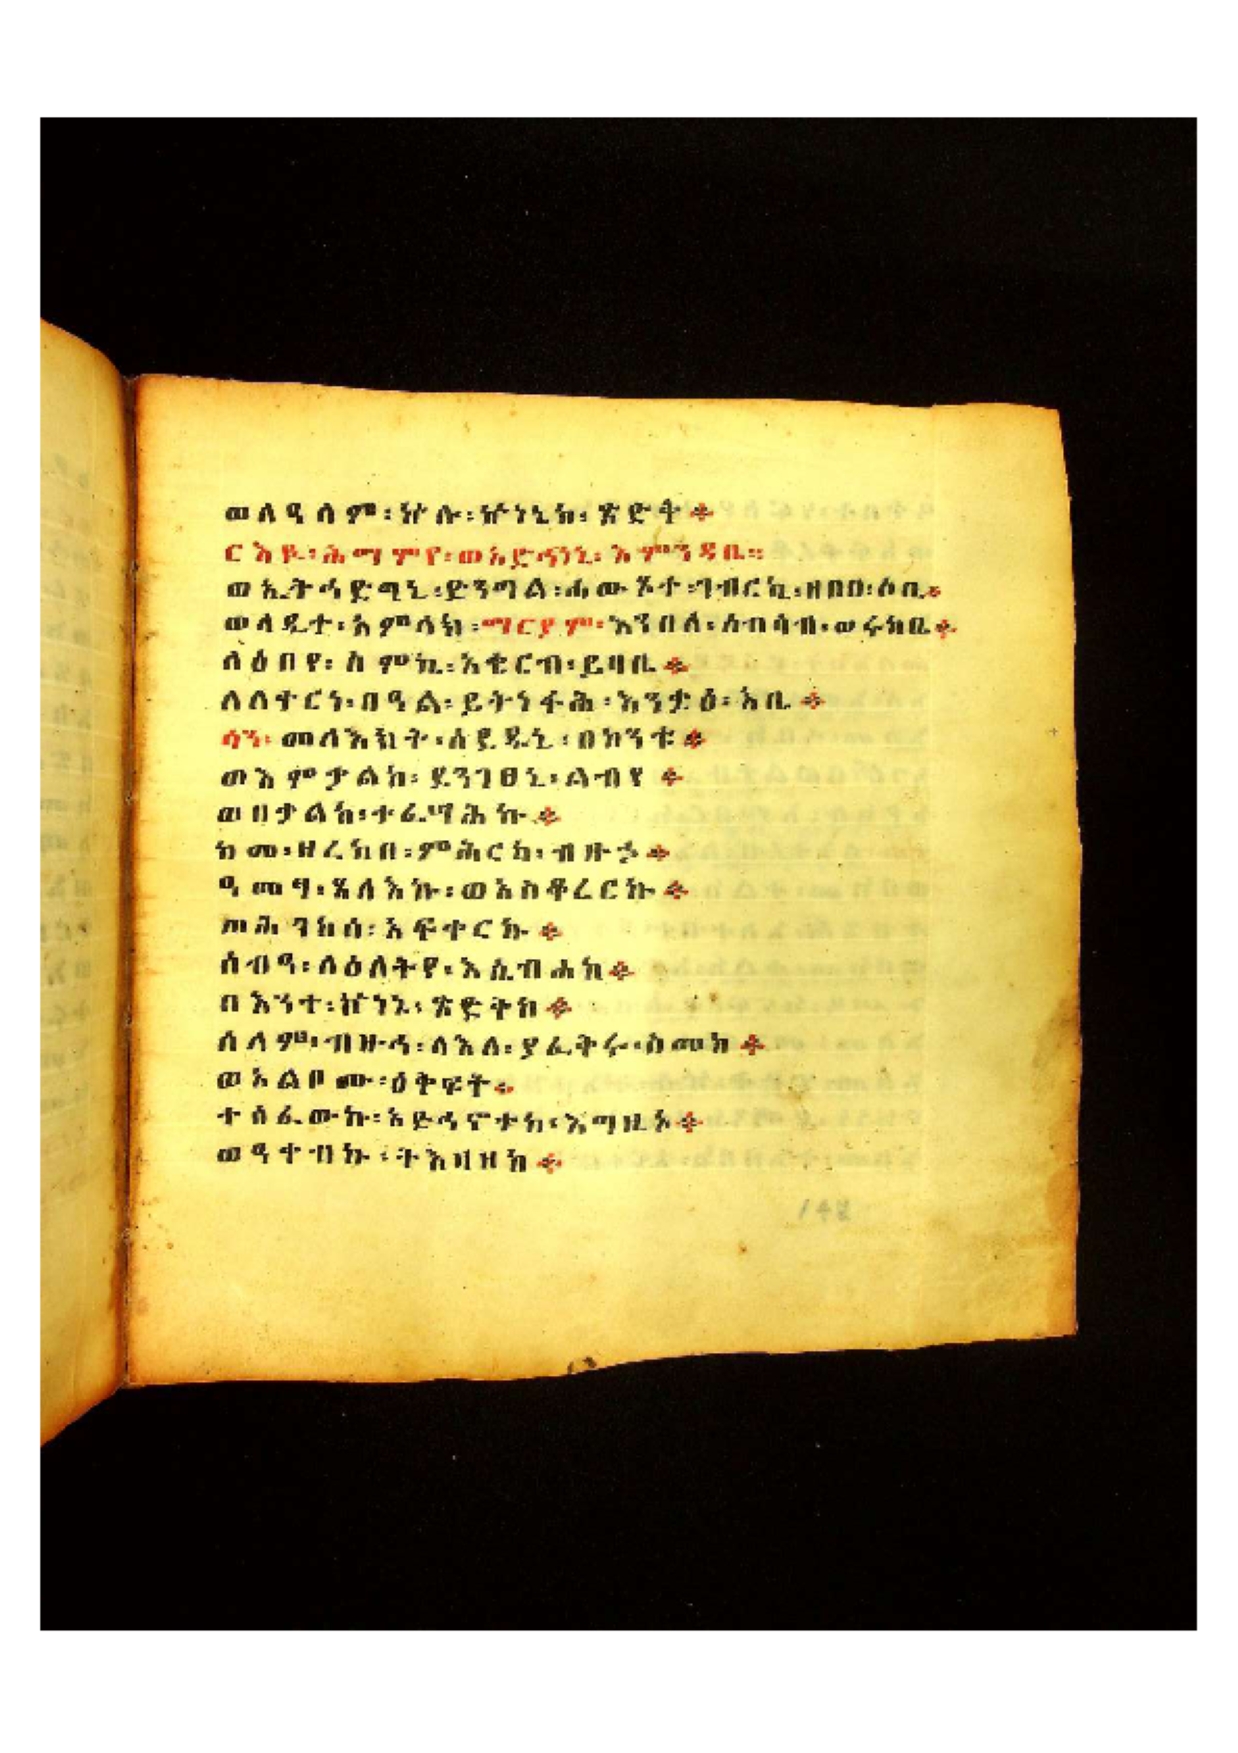 ወለዓለም፡ኵሉ፡ኵነኔከ፡ጽድቅ፨
ርእዪ፡ሕማምየ፡ወአድኅነኒ፡እምንዳቤ።
ወኢትኅድግኒ፡ድንግል፡ሐውጾተ፡ገብርኪ፡ዘበዐ፡ዕቤ፨
ወላዲተ፡አምላክ፡ማርያም፡እንበለ፡ሰብሳብ፡ወሩካቤ፨
ለዕበየ፡ስምኪ፡አቄርብ፡ይባቤ፨
ለለተርነ፡በዓል፡ይትነፋሕ፡እንታዕ፡አቤ፨
ሳን፡መላእክት፡ሰደዱኒ፡በከንቱ፨
ወእምቃልከ፡ደንገፀኒ፡ልብየ፨
ወበቃልከ፡ተፈሣሕኩ፨
ከመ፡ዘረከበ፡ምሕርካ፡ብዙኃ፨
ዓመፃ፡ጸላእኩ፡ወአስቆረርኩ፨
ወሕገከሰ፡አፍቀርኩ፨
ሰብዓ፡ለዕለትየ፡እሴብሐከ፨
በእንተ፡ኵነኔ፡ጽድቅከ፨
ሰላም፡ብዙኅ፡ለእለ፡ያፈቅሩ፡ስመከ፨
ወአልቦሙ፡ዕቅፍት፨
ተሰፈውኩ፡አድኅኖተከ፡እግዚኦ፨
ወዓቀብኩ፡ትእዛዘከ፨
148